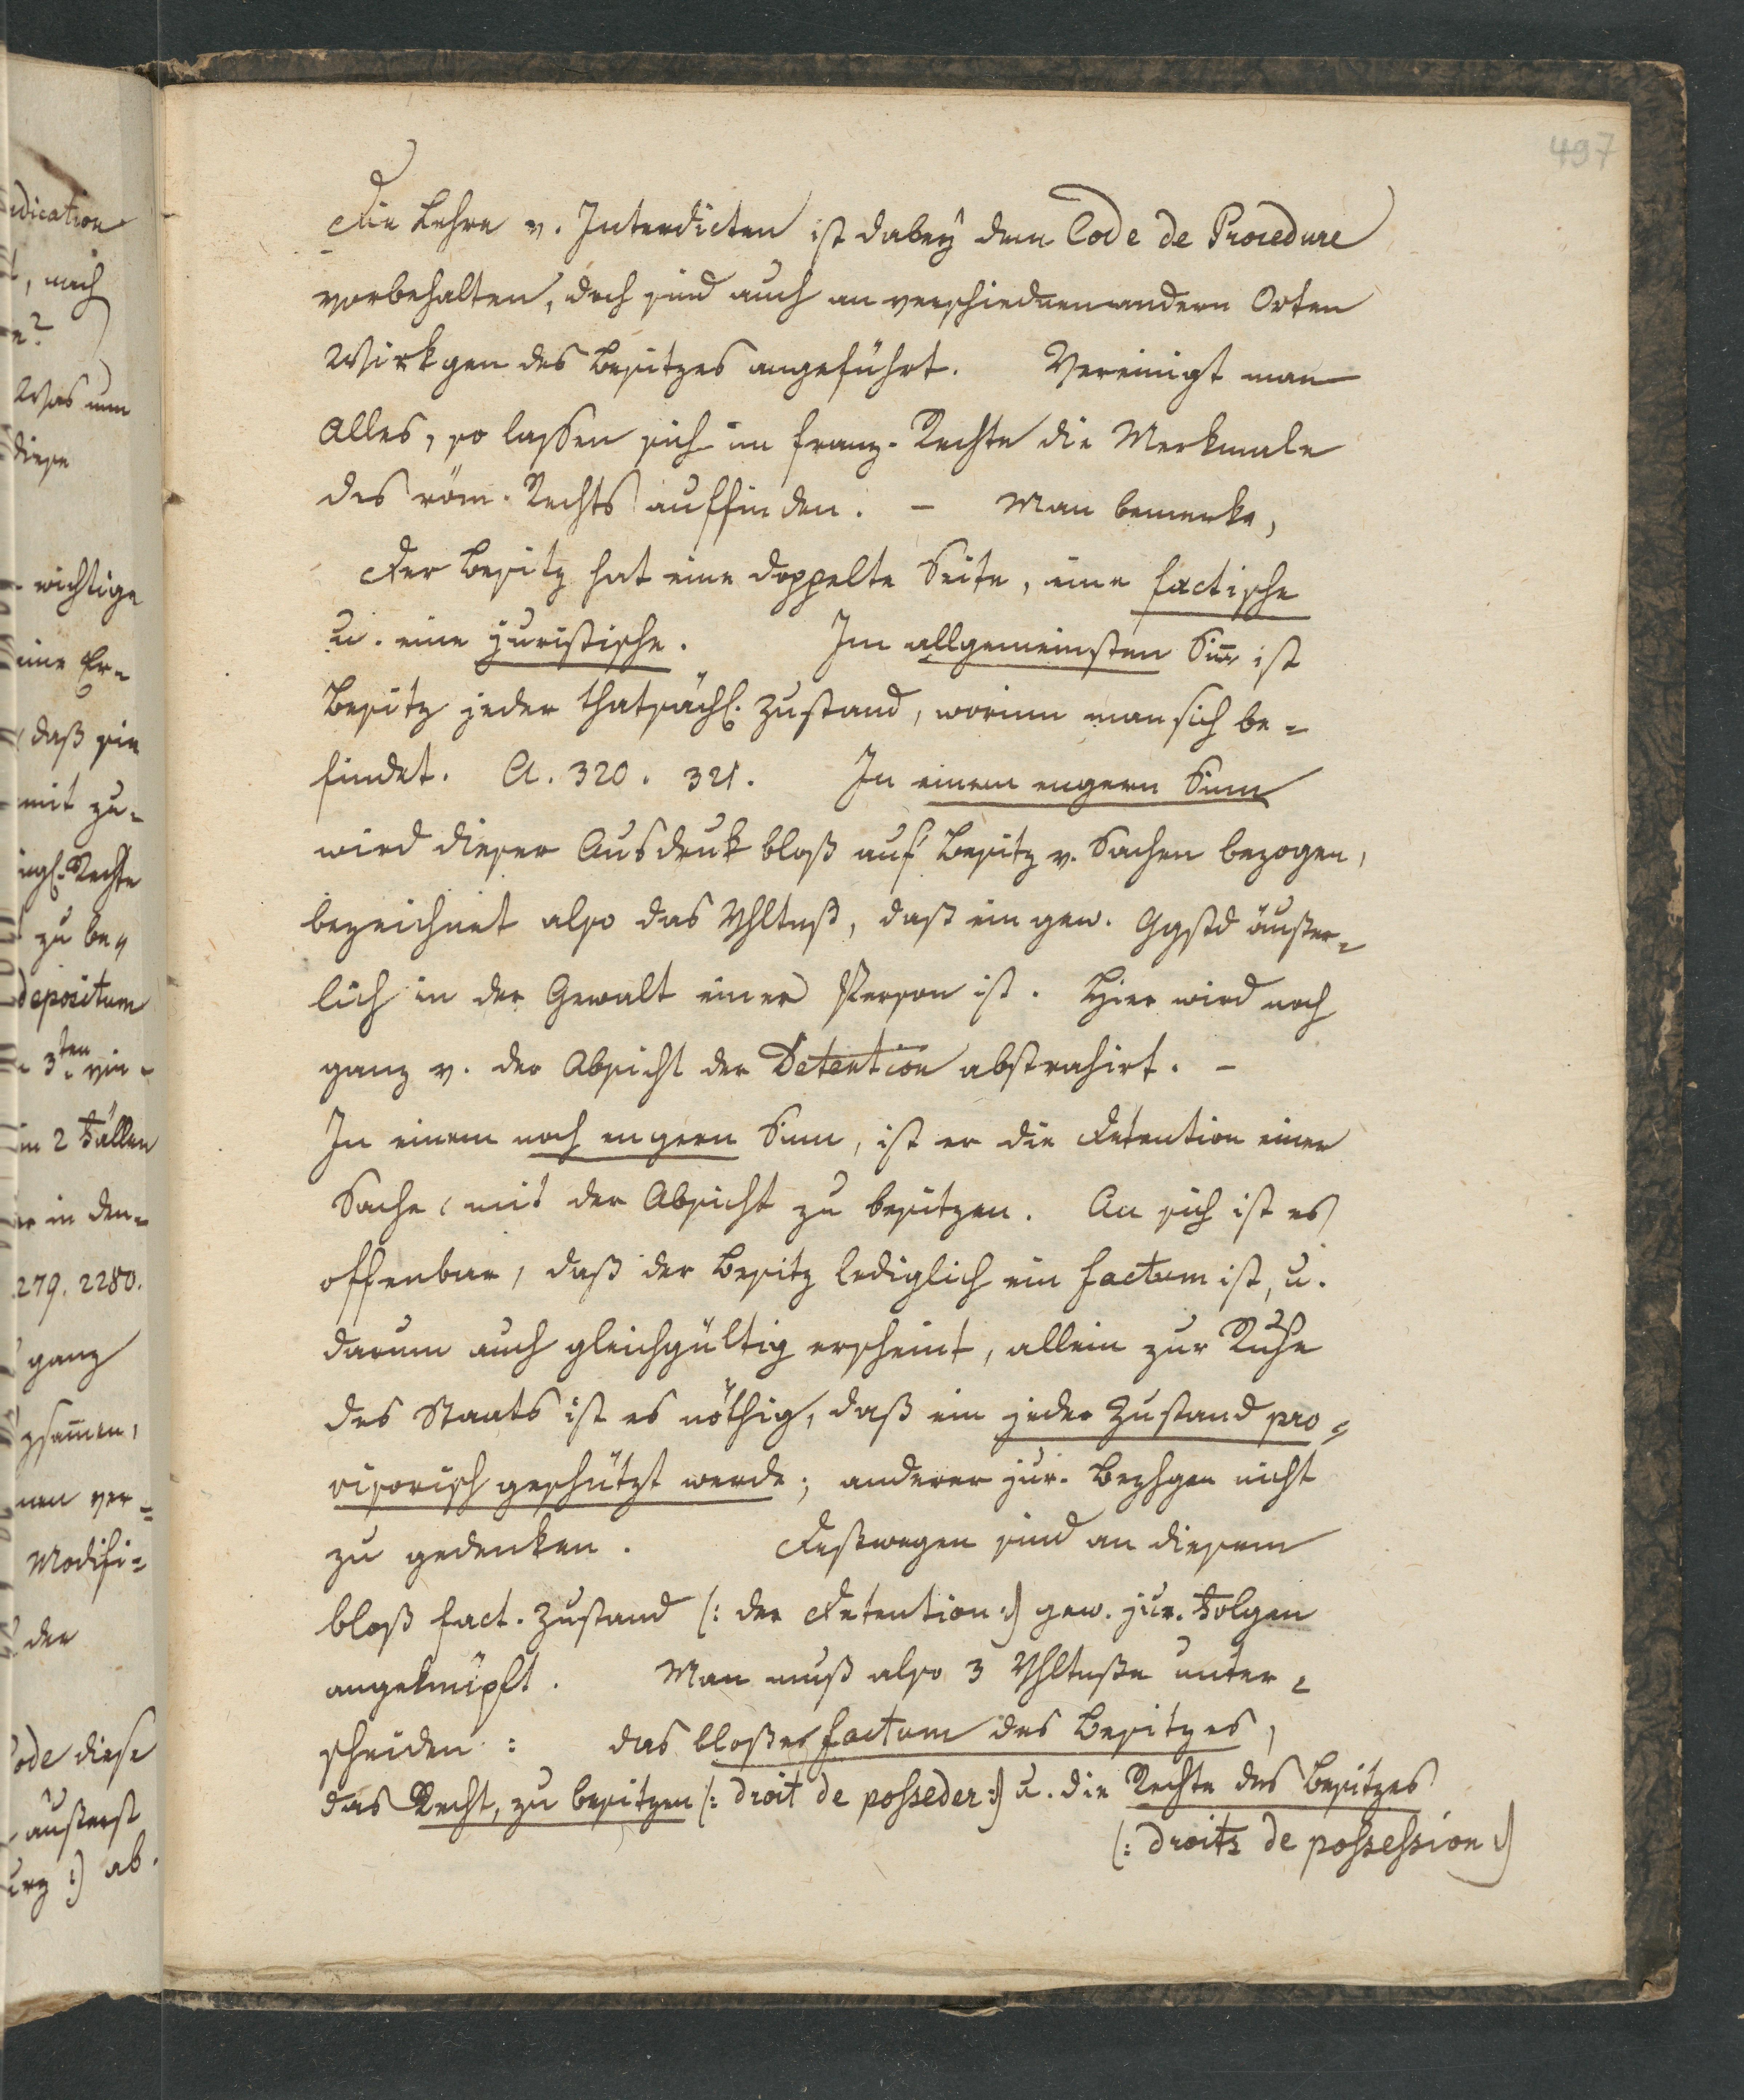 497
Die Lehre v. Interdicten ist dabey dem Code de Procedure
vorbehalten, doch sind auch an verschiednen andern Orten
Wirkgen des Besitzes angeführt. Vereinigt man
Alles, so lassen sich im franz. Rechte die Merkmale
des röm. Rechts auffinden. – Man bemerke,
Der Besitz hat eine doppelte Seite, eine factische
u. eine juristische. Im allgemeinsten Sinn ist
Besitz jeder thatsächl. Zustand, worinn man sich be=
findet. A. 320. 321. In einem engern Sinn
wird dieser Ausdruk bloß auf Besitz v. Sachen bezogen,
bezeichnet also das Vhltnß, daß ein gew. Ggstd äußer=
lich in der Gewalt einer Person ist. Hier wird noch
ganz v. der Absicht der Detention abstrahirt. –
In einem noch engern Sinn, ist er die Detention einer
Sache, mit der Absicht zu besitzen. An sich ist es
offenbar, daß der Besitz lediglich ein factum ist, u.
darum auch gleichgültig erscheint, allein zur Ruhe
des Staats ist es nöthig, daß ein jeder Zustand pro=
visorisch geschützt werde; anderer jur. Bezhgen nicht
zu gedenken. Deßwegen sind an diesem
bloß fact. Zustand (: der Detention :) gew. jur. Folgen
angeknüpft. Man muß also 3 Vhltnße unter=
scheiden: das bloßes factum des Besitzes,
das Recht, zu besitzen (: droit de posseder :) u. die Rechte des Besitzes
(: droits de possession :)
dication
, nach
Was nun
diese
wichtige
eine Er=
daß sie
mit zu=
Rechte
zu be=
depositum
3ten
in 2 Fällen
in den=
279. 2280.
ganz
zsamen,
ver=
Modifi=
der
Code diese
äußerst
:) ab.